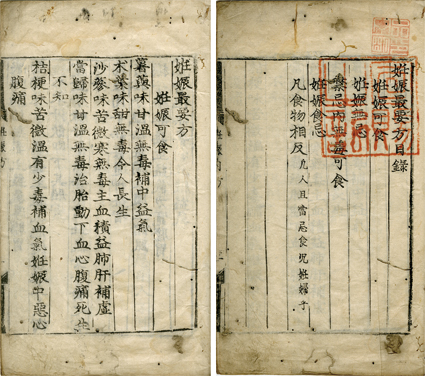 姙娠最要方目錄
姙娠可食
姙娠
藥忌內無毒可食
姙娠食忌
凡食物相反 凡人且當忌食況姙婦乎
姙娠最要方
姙娠可食
薯蕷味甘溫無毒補中益氣
朮葉味甜無毒令人長生
沙參味苦微寒無毒主血積益肺肝補虛
當歸味甘溫無毒治胎動下血心腹痛死生
不知
桔梗味苦微溫有少毒補血氣姙娠中惡心
腹痛